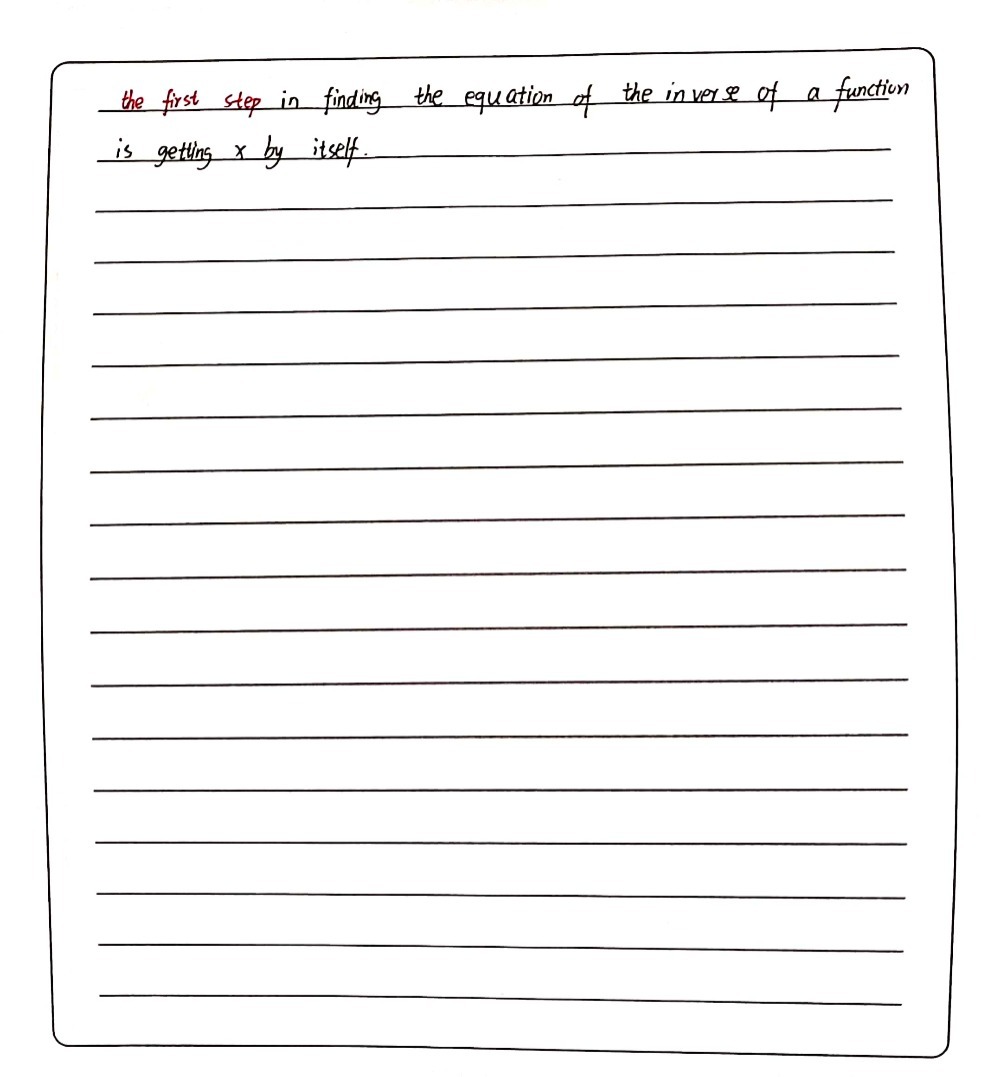 the first step in finding the equation of the inverse of a function
is getting x by itself.